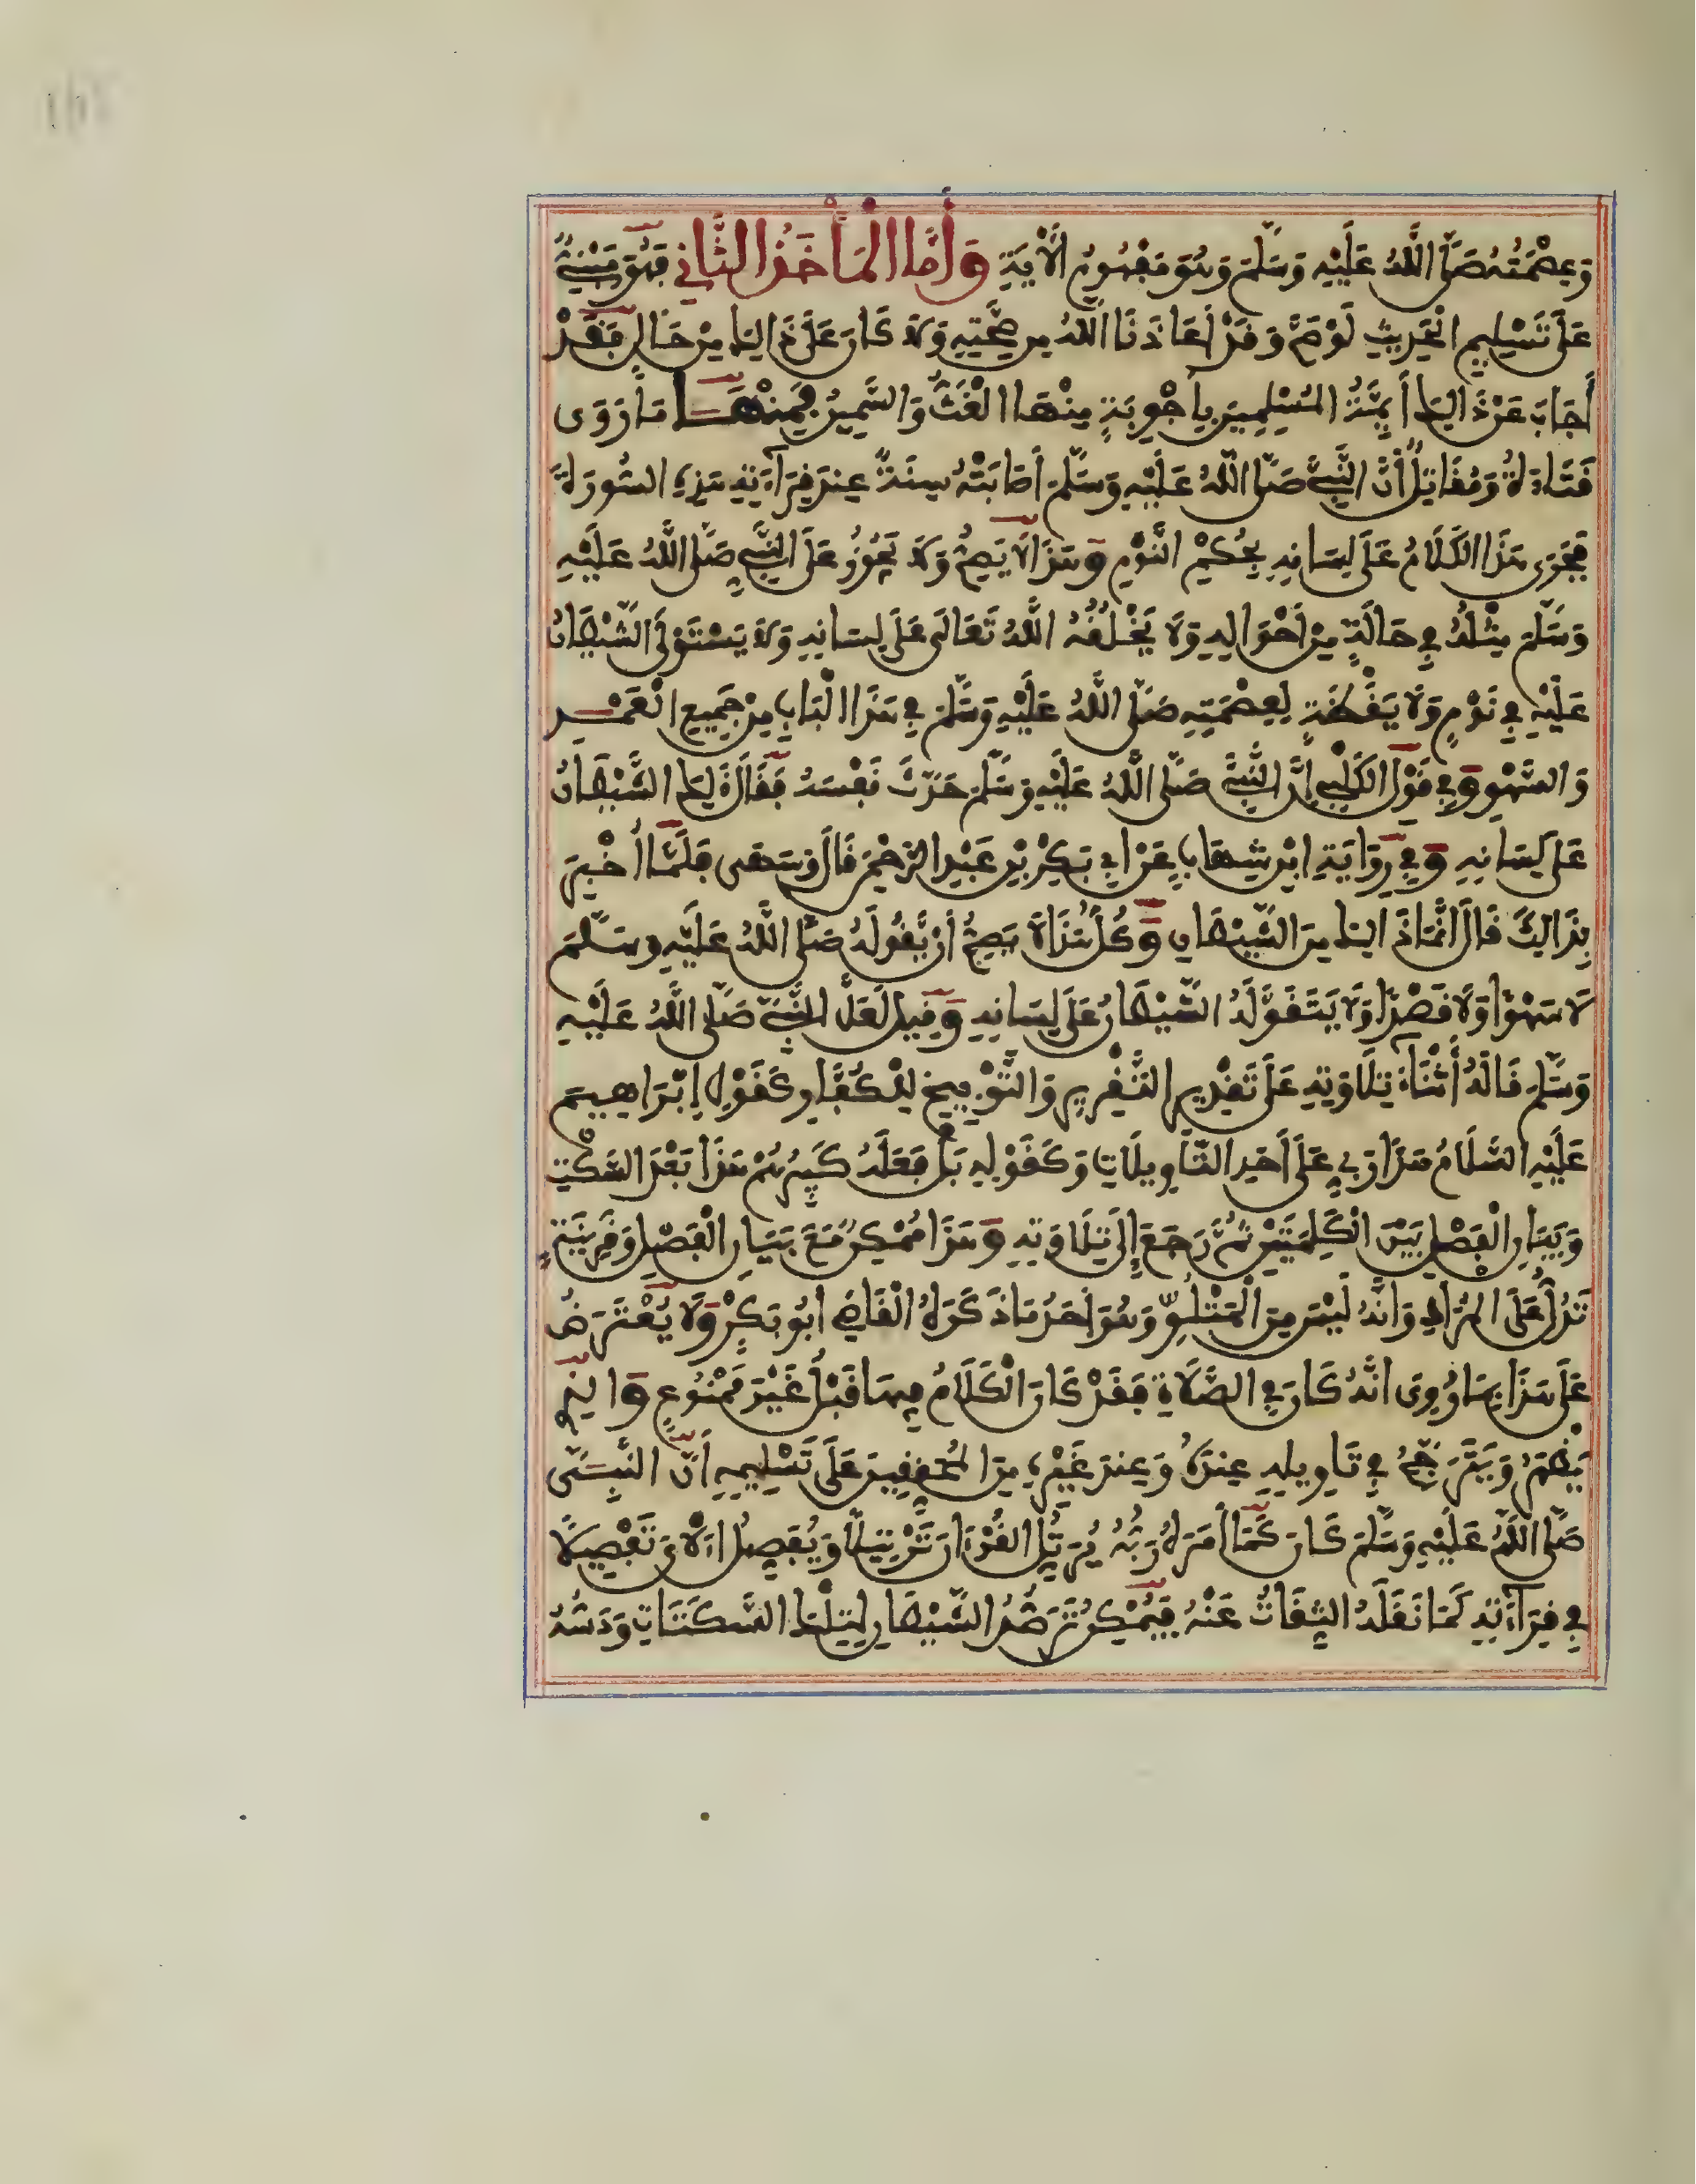 وَعِصْمَتُهُ صَلَّى اللَّهُ عَلَيْهِ وَسَلَّمَ وَهُوَ مَفْهُومُ الْآيَةِ وَأَمَّا الْمَأْخَذُ الثَّانِي فَهُوَ مَبْنِيٌّ
عَلَى تَسْلِيمِ الْحَدِيثِ لَوْ صَحَّ وَقَدْ أَعَاذَنَا اللَّهُ مِن صِحَّتِهِ وَلَاكِن عَلَى ذَالِكَ مِنْ حَالٍ فَقَدْ
أَجَابَ عَنْ ذَالِكَ أَيِمَّةُ الْمُسْلِمِينَ بِأَجْوِبَةٍ مِنْهَا الْغَثُّ وَالسَّمِينُ فَمِنْهَا مَا رَوَى
قَتَادَةُ وَمُقَاتِلٌ أَنَّ النَّبِيَّ صَلَّى اللَّهُ عَلَيْهِ وَسَلَّمَ أَصَابَتْهُ سِنَةٌ عِندَ قِرَاءَتِهِ هَذِهِ السُّورَةَ
فَجَرَى هَذَا الْكَلَامُ عَلَى لِسَانِهِ بِحُكْمِ النَّوْمِ وَهَذَا لَا يَصِحُّ وَلَا يَجُوزُ عَلَى النَّبِيِّ صَلَّى اللَّهُ عَلَيْهِ
وَسَلَّمَ مِثْلُهُ فِي حَالَةٍ مِنْ أَحْوَالِهِ وَلَا يَخْلُقُهُ اللَّهُ تَعَالَى عَلَى لِسَانِهِ وَلَا يَسْتَوْلِي الشَّيْطَانُ
عَلَيْهِ فِي نَوْمٍ وَلَا يَقْظَةٍ لِعِصْمَتِهِ صَلَّى اللَّهُ عَلَيْهِ وَسَلَّمَ فِي هَذَا الْبَابِ مِنْ جَمِيعِ الْعَمْدِ
وَالسَّهْوِ وَفِي قَوْلِ الْكَلْبِيِّ إِنَّ النَّبِيَّ صَلَّى اللَّهُ عَلَيْهِ وَسَلَّمَ حَدَّثَ نَفْسَهُ فَقَالَ ذَلِكَ الشَّيْطَانُ
عَلَى لِسَانِهِ وَفِي رِوَايَةِ ابْنِ شِهَابٍ عَنْ أَبِي بَكْرِ بْنِ عَبْدِ الرَّحْمَنِ قَالَ وَسَهَى فَلَمَّا أُخْبِرَ
بِذَالِكَ قَالَ إِنَّمَا ذَالِكَ مِنَ الشَّيْطَانِ وَكُلُّ هَذَا لَا يَصِحُّ أَنْ يَقُولَهُ صَلَّى اللَّهُ عَلَيْهِ وَسَلَّمَ
لَا سَهْوًا وَلَا قَصْدًا وَلَا يَتَقَوَّلَهُ الشَّيْطَانُ عَلَى لِسَانِهِ وَقِيلَ لَعَلَّ النَّبِيَّ صَلَّى اللَّهُ عَلَيْهِ
وَسَلَّمَ قَالَهُ أَثْنَاءَ تِلَاوَتِهِ عَلَى تَقْدِيرِ التَّقْرِيرِ وَالتَّوْبِيخِ لِلْكُفَّارِ كَقَوْلِ إِبْرَاهِيمَ
عَلَيْهِ السَّلَامُ هَذَا رَبِّي عَلَى أَحَدِ التَّأْوِيلَاتِ وَكَقَوْلِهِ بَلْ فَعَلَهُ كَبِيرُهُمْ هَذَا بَعْدَ السَّكْتِ
وَبَيَانِ الْفَصْلِ بَيْنَ الْكَلِمَتَيْنِ ثُمَّ رَجَعَ إِلَى تِلَاوَتِهِ وَهَذَا مُمْكِنٌ مَعَ بَيَانِ الْفَصْلِ وَقَرِينَةٍ
تَدُلُّ عَلَى الْمُرَادِ وَأَنَّهُ لَيْسَ مِنَ الْمَتْلُوِّ وَهُوَ أَحَدُ مَا ذَكَرَهُ الْقَاضِي أَبُو بَكْرٍ وَلَا يُعْتَرَضُ
عَلَى هَذَا بِمَا رُوِيَ أَنَّهُ كَانَ فِي الصَّلَاةِ فَقَدْ كَانَ الْكَلَامُ فِيهَا قَبْلُ غَيْرَ مَمْنُوعٍ وَالَّذِي
يَظْهَرُ وَيَتَرَجَّحُ فِي تَأْوِيلِهِ عِندَهُ وَعِندَ غَيْرِهِ مِنَ الْمُحَقِّقِينَ عَلَى تَسْلِيمِهِ أَنَّ النَّبِيَّ
صَلَّى اللَّهُ عَلَيْهِ وَسَلَّمَ كَانَ كَمَا أَمَرَهُ رَبُّهُ يُرَتِّلُ الْقُرْءَانَ تَرْتِيلًا وَيُفَصِّلُ الْآيَ تَفْصِيلًا
فِي قِرَاءَتِهِ كَمَا نَقَلَهُ الثِّقَاتُ عَنْهُ فَيُمْكِنُ تَرَصُّدُ الشَّيْطَانِ لِتِلْكَ السَّكَتَاتِ وَدَسُّهُ